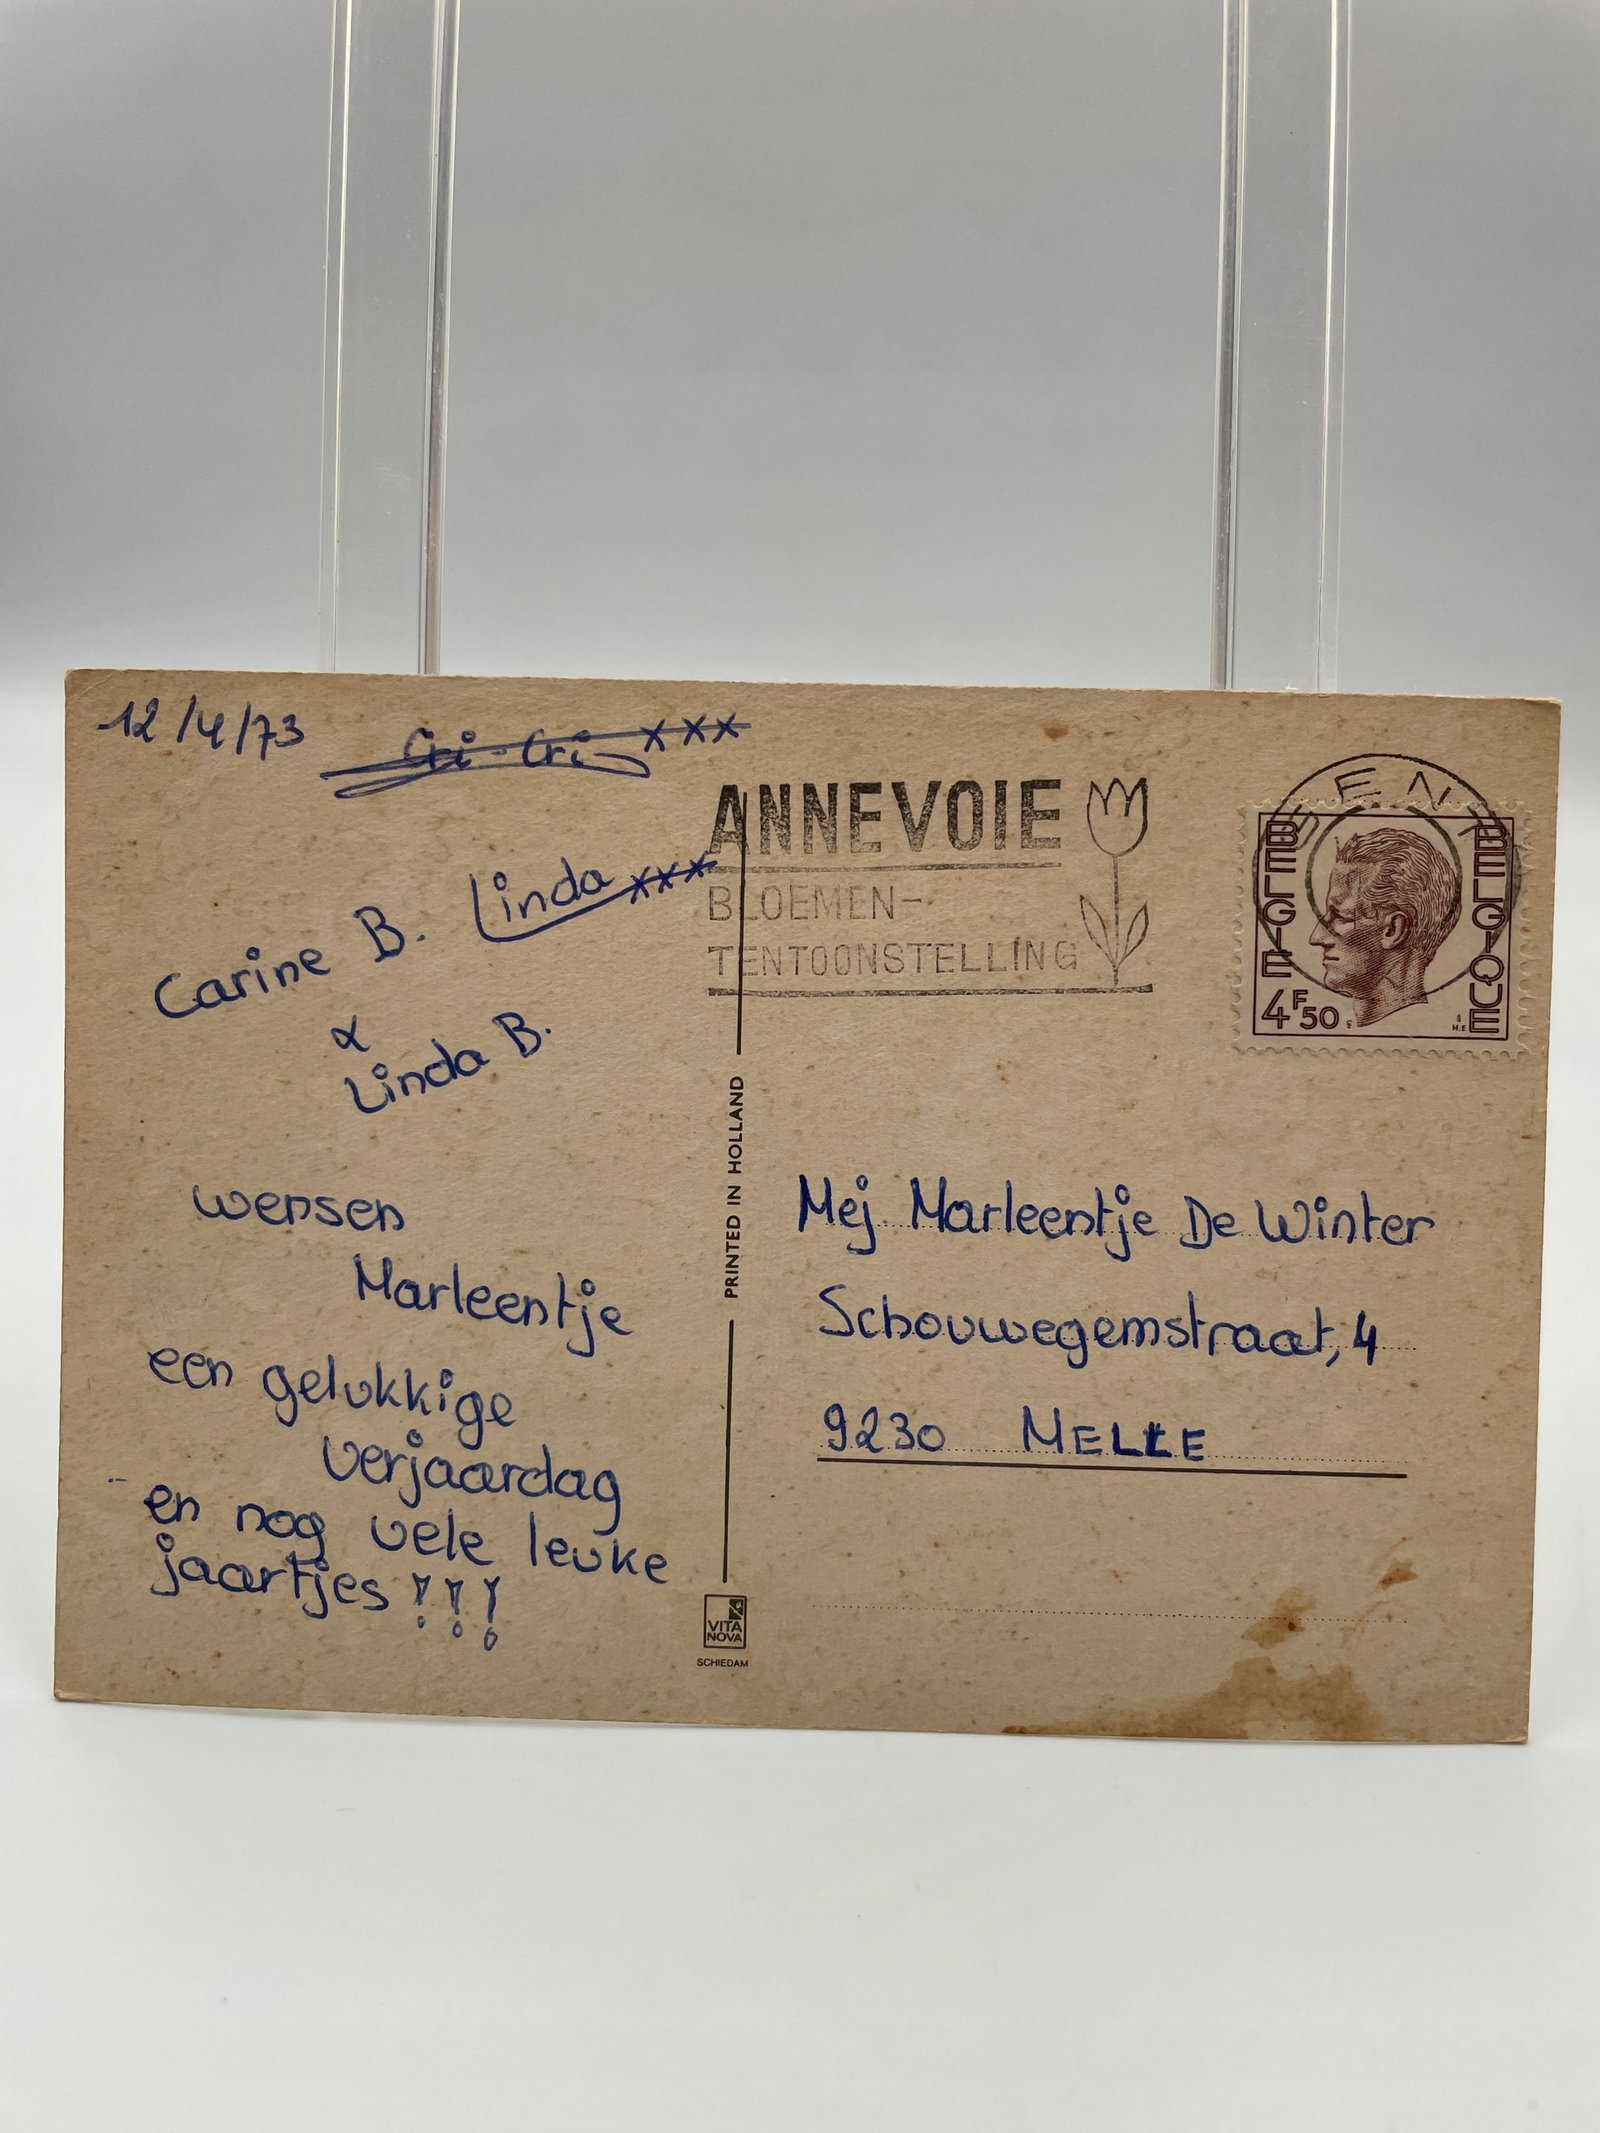 12/4/73
Cri-Cri xxx
Carine B. Linda xxx
&
Linda B.
wensen
Marleentje
een gelukkige
verjaardag
en nog vele leuke
jaartjes !!!
PRINTED IN HOLLAND
VITA
NOVA
SCHIEDAM
ANNEVOIE
BLOEMEN-
TENTOONSTELLING
GENT
BELGIE
BELGIQUE
4F50
Mej Marleentje De Winter
Schouwegemstraat, 4
9230 MELLE